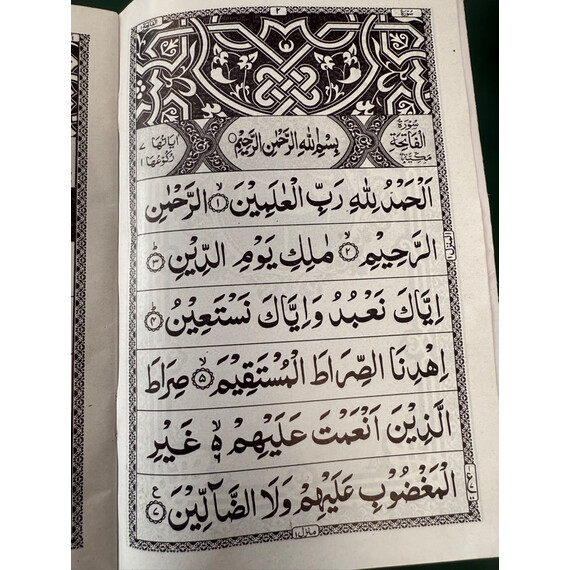 سورة ٢ الفاتحة
سُوْرَةُ الْفَاتِحَةِ مَكِّيَّةٌ
بِسْمِ اللّٰهِ الرَّحْمٰنِ الرَّحِيْمِ
اٰيَاتُهَا ٧ رُكُوْعُهَا ١
اَلْحَمْدُ لِلّٰهِ رَبِّ الْعٰلَمِيْنَ ۙ﴿١﴾ الرَّحْمٰنِ
الرَّحِيْمِ ۙ﴿٢﴾ مٰلِكِ يَوْمِ الدِّيْنِ ؕ﴿٣﴾
اِيَّاكَ نَعْبُدُ وَاِيَّاكَ نَسْتَعِيْنُ ؕ﴿۴﴾
اِهْدِنَا الصِّرَاطَ الْمُسْتَقِيْمَ ۙ﴿۵﴾ صِرَاطَ
الَّذِيْنَ اَنْعَمْتَ عَلَيْهِمْ ۙ۬ۙ غَيْرِ
الْمَغْضُوْبِ عَلَيْهِمْ وَلَا الضَّآلِّيْنَ ﴿٧﴾ ع
المنزل ١
منزل ١